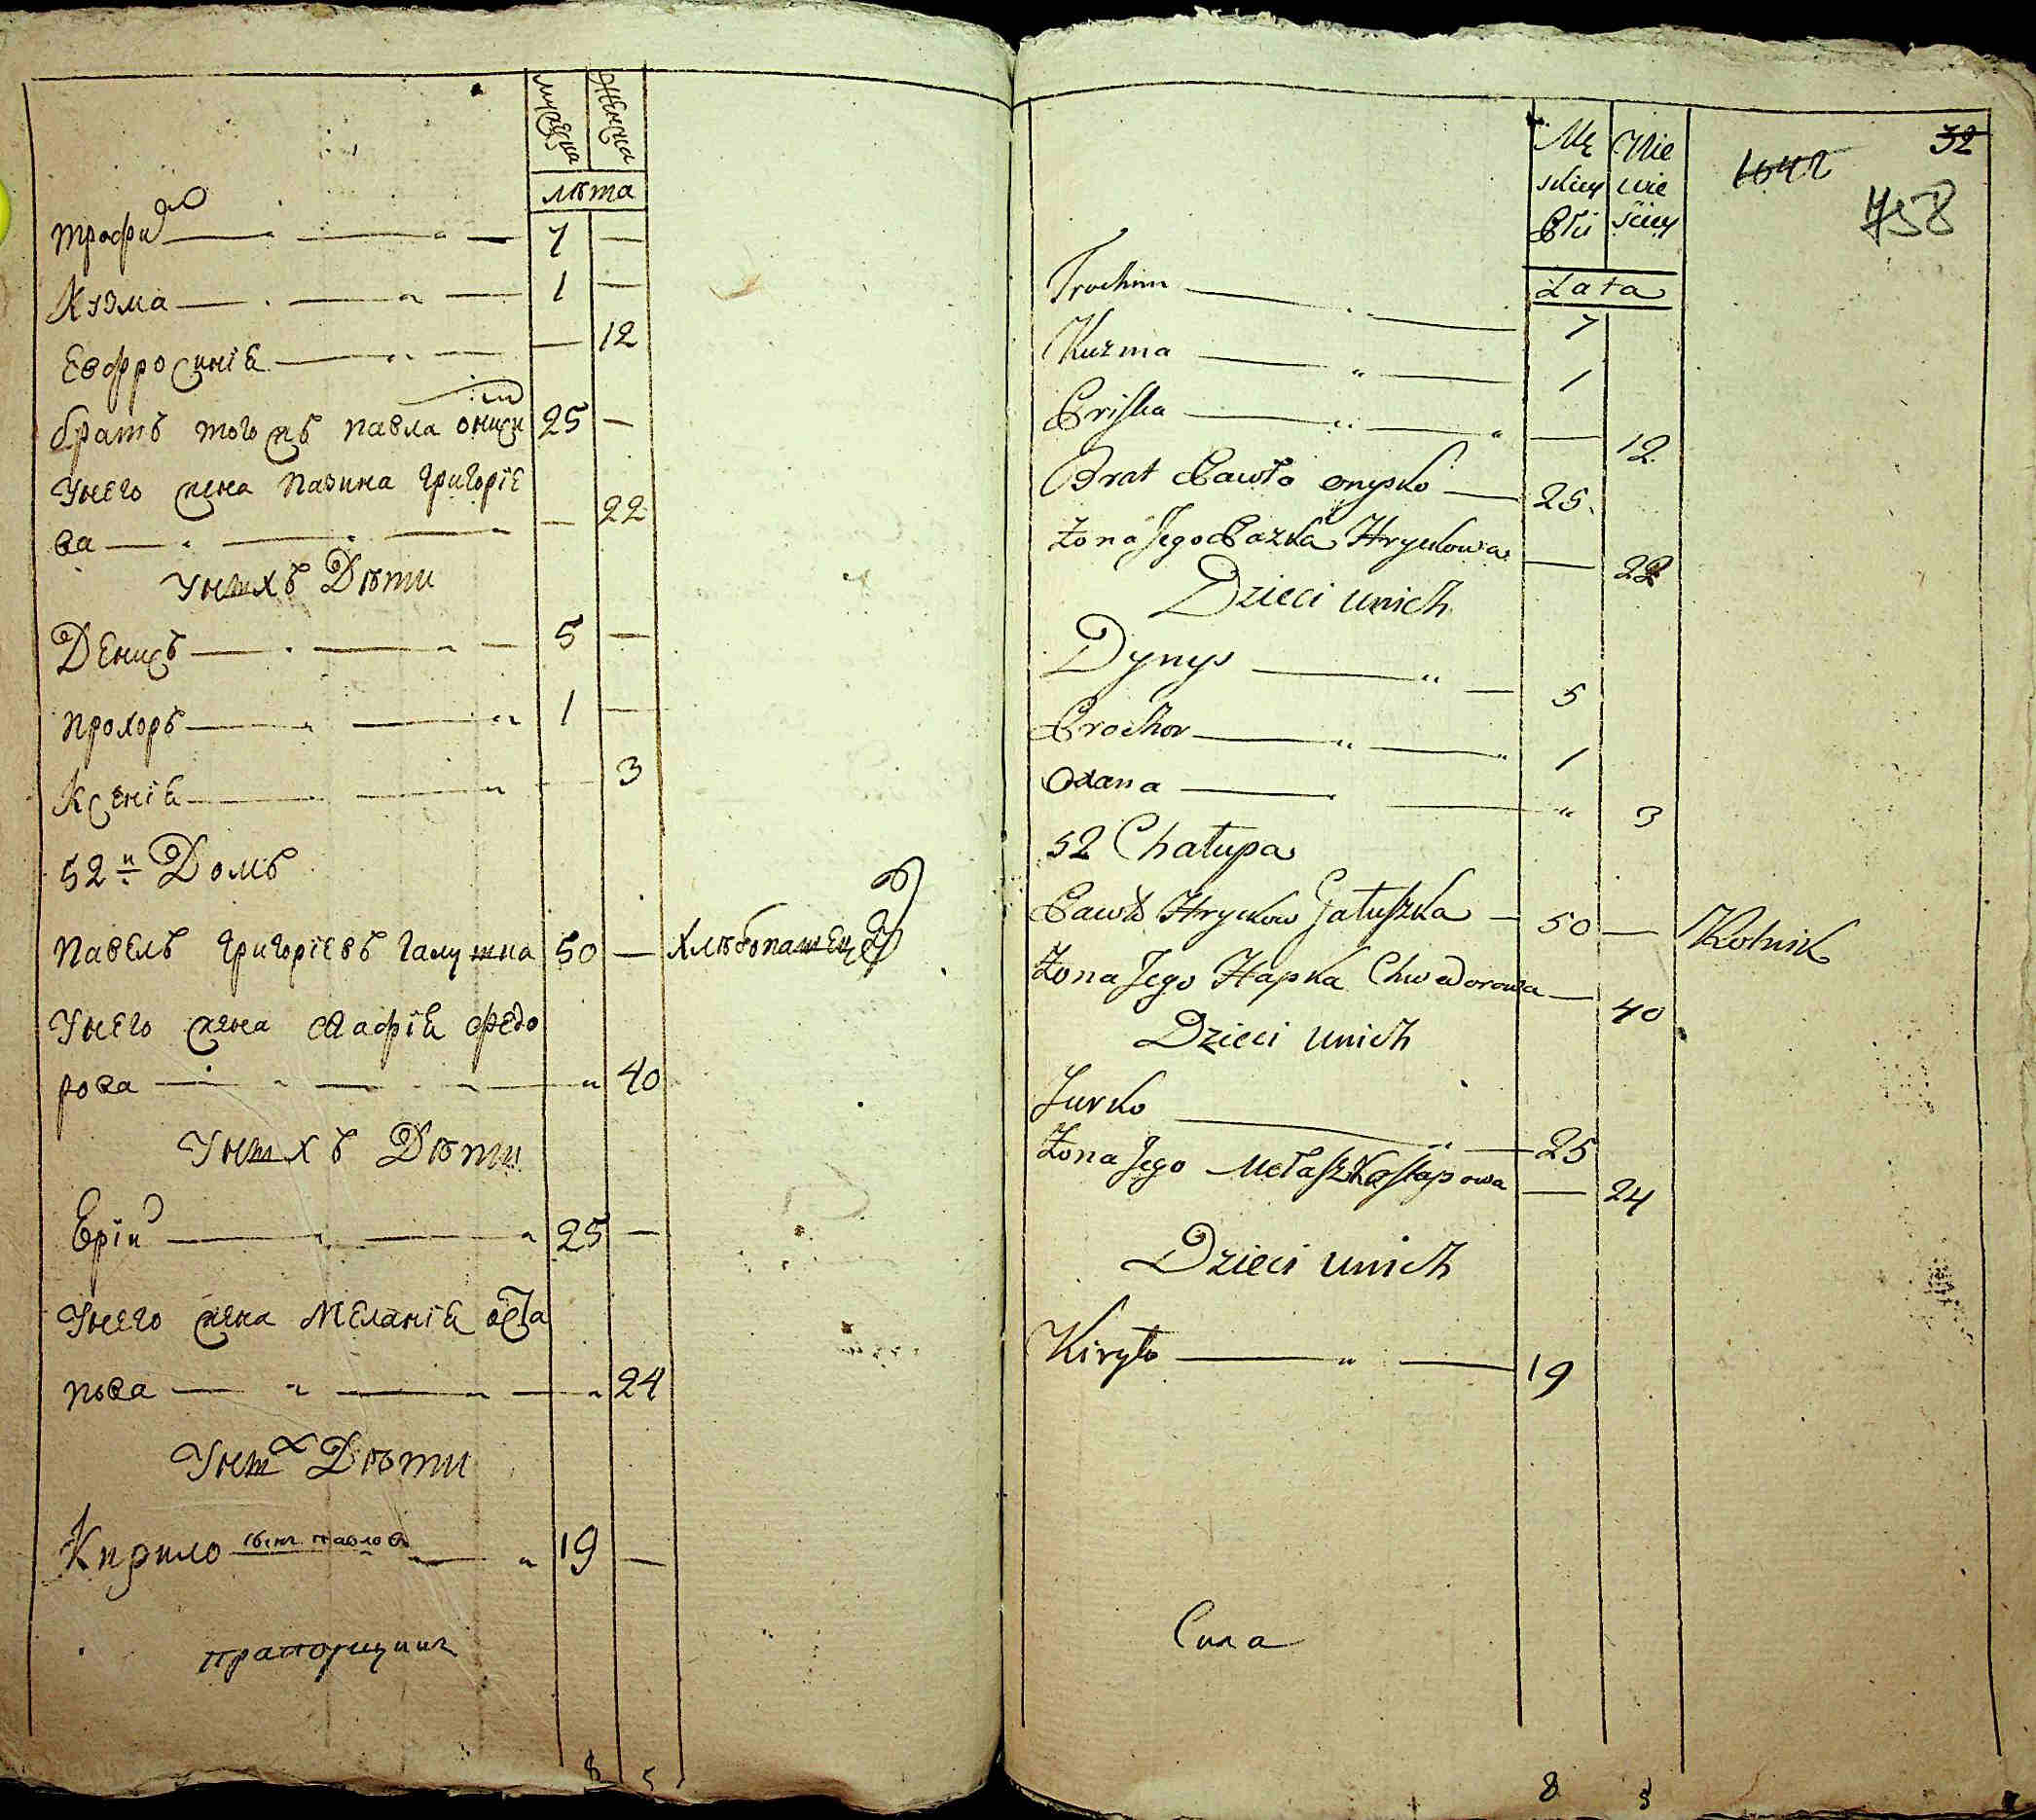 мужеска женска
лѣта
Трофим — 7 —
Кузма — 1 —
Евфросиніѧ — — 12
братъ того жъ Павла Онисим 25 —
У него жена Пазина Григоріе
ва — — 22
У нихъ Дѣти
Денисъ — 5 —
Прохоръ — 1 —
Ксеніѧ — — 3
52й Домъ
Павелъ Григоріевъ Галушка 50 — Хлѣбопашецъ
У него жена Агафіѧ Федо
рова — 40
У нихъ Дѣти
Юрій — 25 —
У него жена Меланіѧ Оста
пова — 24
У них Дѣти
Кирило сынъ Павлов — 19 —
прапорщикъ
8 5
32
1642
758
Mę skiey Płci Nie wie ściey
Lata
Trochim — 7
Kuzma — 1
Priska — — 12
Brat Pawła Onysko — 25
Żona Jego Pazka Hryckowa — 22
Dzieci u nich
Dynys — 5
Prochor — 1
Oxana — 3
52 Chałupa
Pawło Hryckow Gałuszka — 50 — Rolnik
Żona Jego Hapka Chwedorowa — 40
Dzieci u nich
Jurko — 25
Żona Jego Mełaszka Ostapowa — 24
Dzieci u nich
Kiryło — 19
Сила
8 5